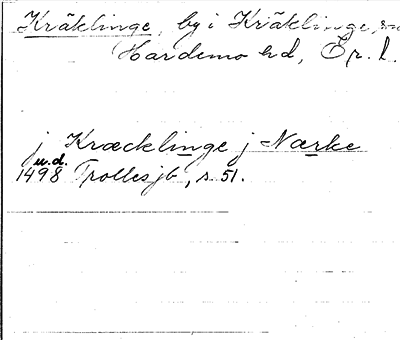 Kräklinge, by i Kräklinge sn
Hardemo hd, Ör. l.
j Kræcklinge j Nærke
u.d.
1498 Trolles jb, s. 51.